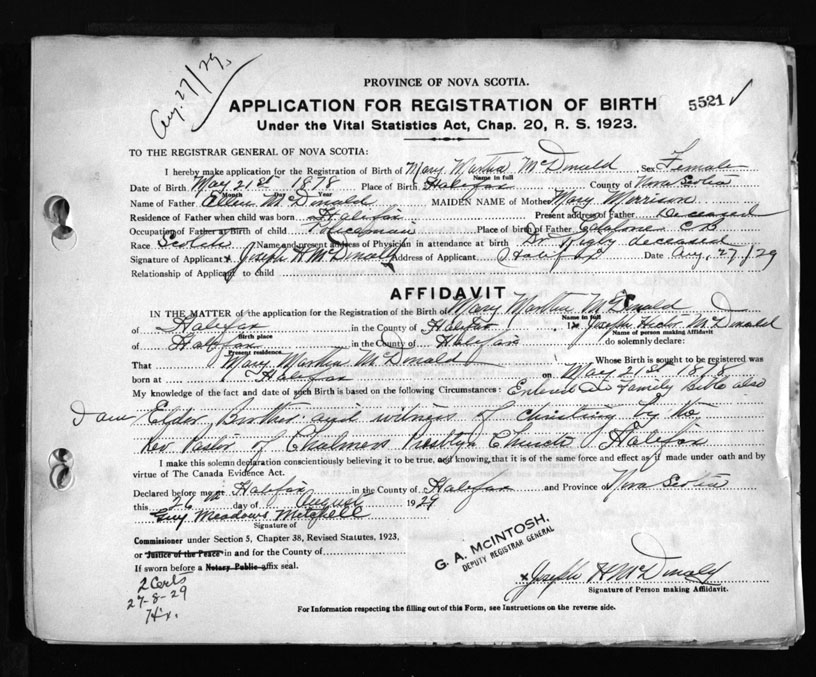 Aug. 27/29.
PROVINCE OF NOVA SCOTIA.
APPLICATION FOR REGISTRATION OF BIRTH
5521 ✓
Under the Vital Statistics Act, Chap. 20, R. S. 1923.
TO THE REGISTRAR GENERAL OF NOVA SCOTIA:
I hereby make application for the Registration of Birth of Mary Martha McDonald Sex Female
Name in full
Date of Birth May 21st 1878 Place of Birth Halifax County of Nova Scotia
Month Day Year
Name of Father McDonald MAIDEN NAME of Mother Mary Morrison
Residence of Father when child was born Halifax Present address of Father Deceased
Occupation of Father at Birth of child Policeman Place of birth of Father Catalone C B
Race Scotch Name and present address of Physician in attendance at birth Dr. deceased
Signature of Applicant x Joseph H McDonald Address of Applicant Halifax Date Aug. 27/29
Relationship of Applicant to child
AFFIDAVIT
IN THE MATTER of the application for the Registration of the Birth of Mary Martha McDonald
Name in full
of Halifax in the County of Halifax I, Joseph McDonald
Birth place
Name of person making Affidavit
of Halifax in the County of Halifax do solemnly declare:
Present residence
That Mary Martha McDonald Whose Birth is sought to be registered was
born at Halifax on May 21st 1878
My knowledge of the fact and date of such Birth is based on the following Circumstances: Entered in Family Bible also
I am Elder Brother and witness of Christing by the
Rev of Chalmers Church Halifax
I make this solemn declaration conscientiously believing it to be true, and knowing, that it is of the same force and effect as if made under oath and by
virtue of The Canada Evidence Act.
Declared before me at Halifax in the County of Halifax and Province of Nova Scotia
this 26th day of August 1929
Guy Meadows Mitchell
Signature of
Commissioner under Section 5, Chapter 38, Revised Statutes, 1923,
or Justice of the Peace in and for the County of
If sworn before a Notary Public affix seal.
G. A. McINTOSH,
DEPUTY REGISTRAR GENERAL
x Joseph H McDonald
Signature of Person making Affidavit.
2 Certs
27-8-29
Hx.
For Information respecting the filling out of this Form, see Instructions on the reverse side.